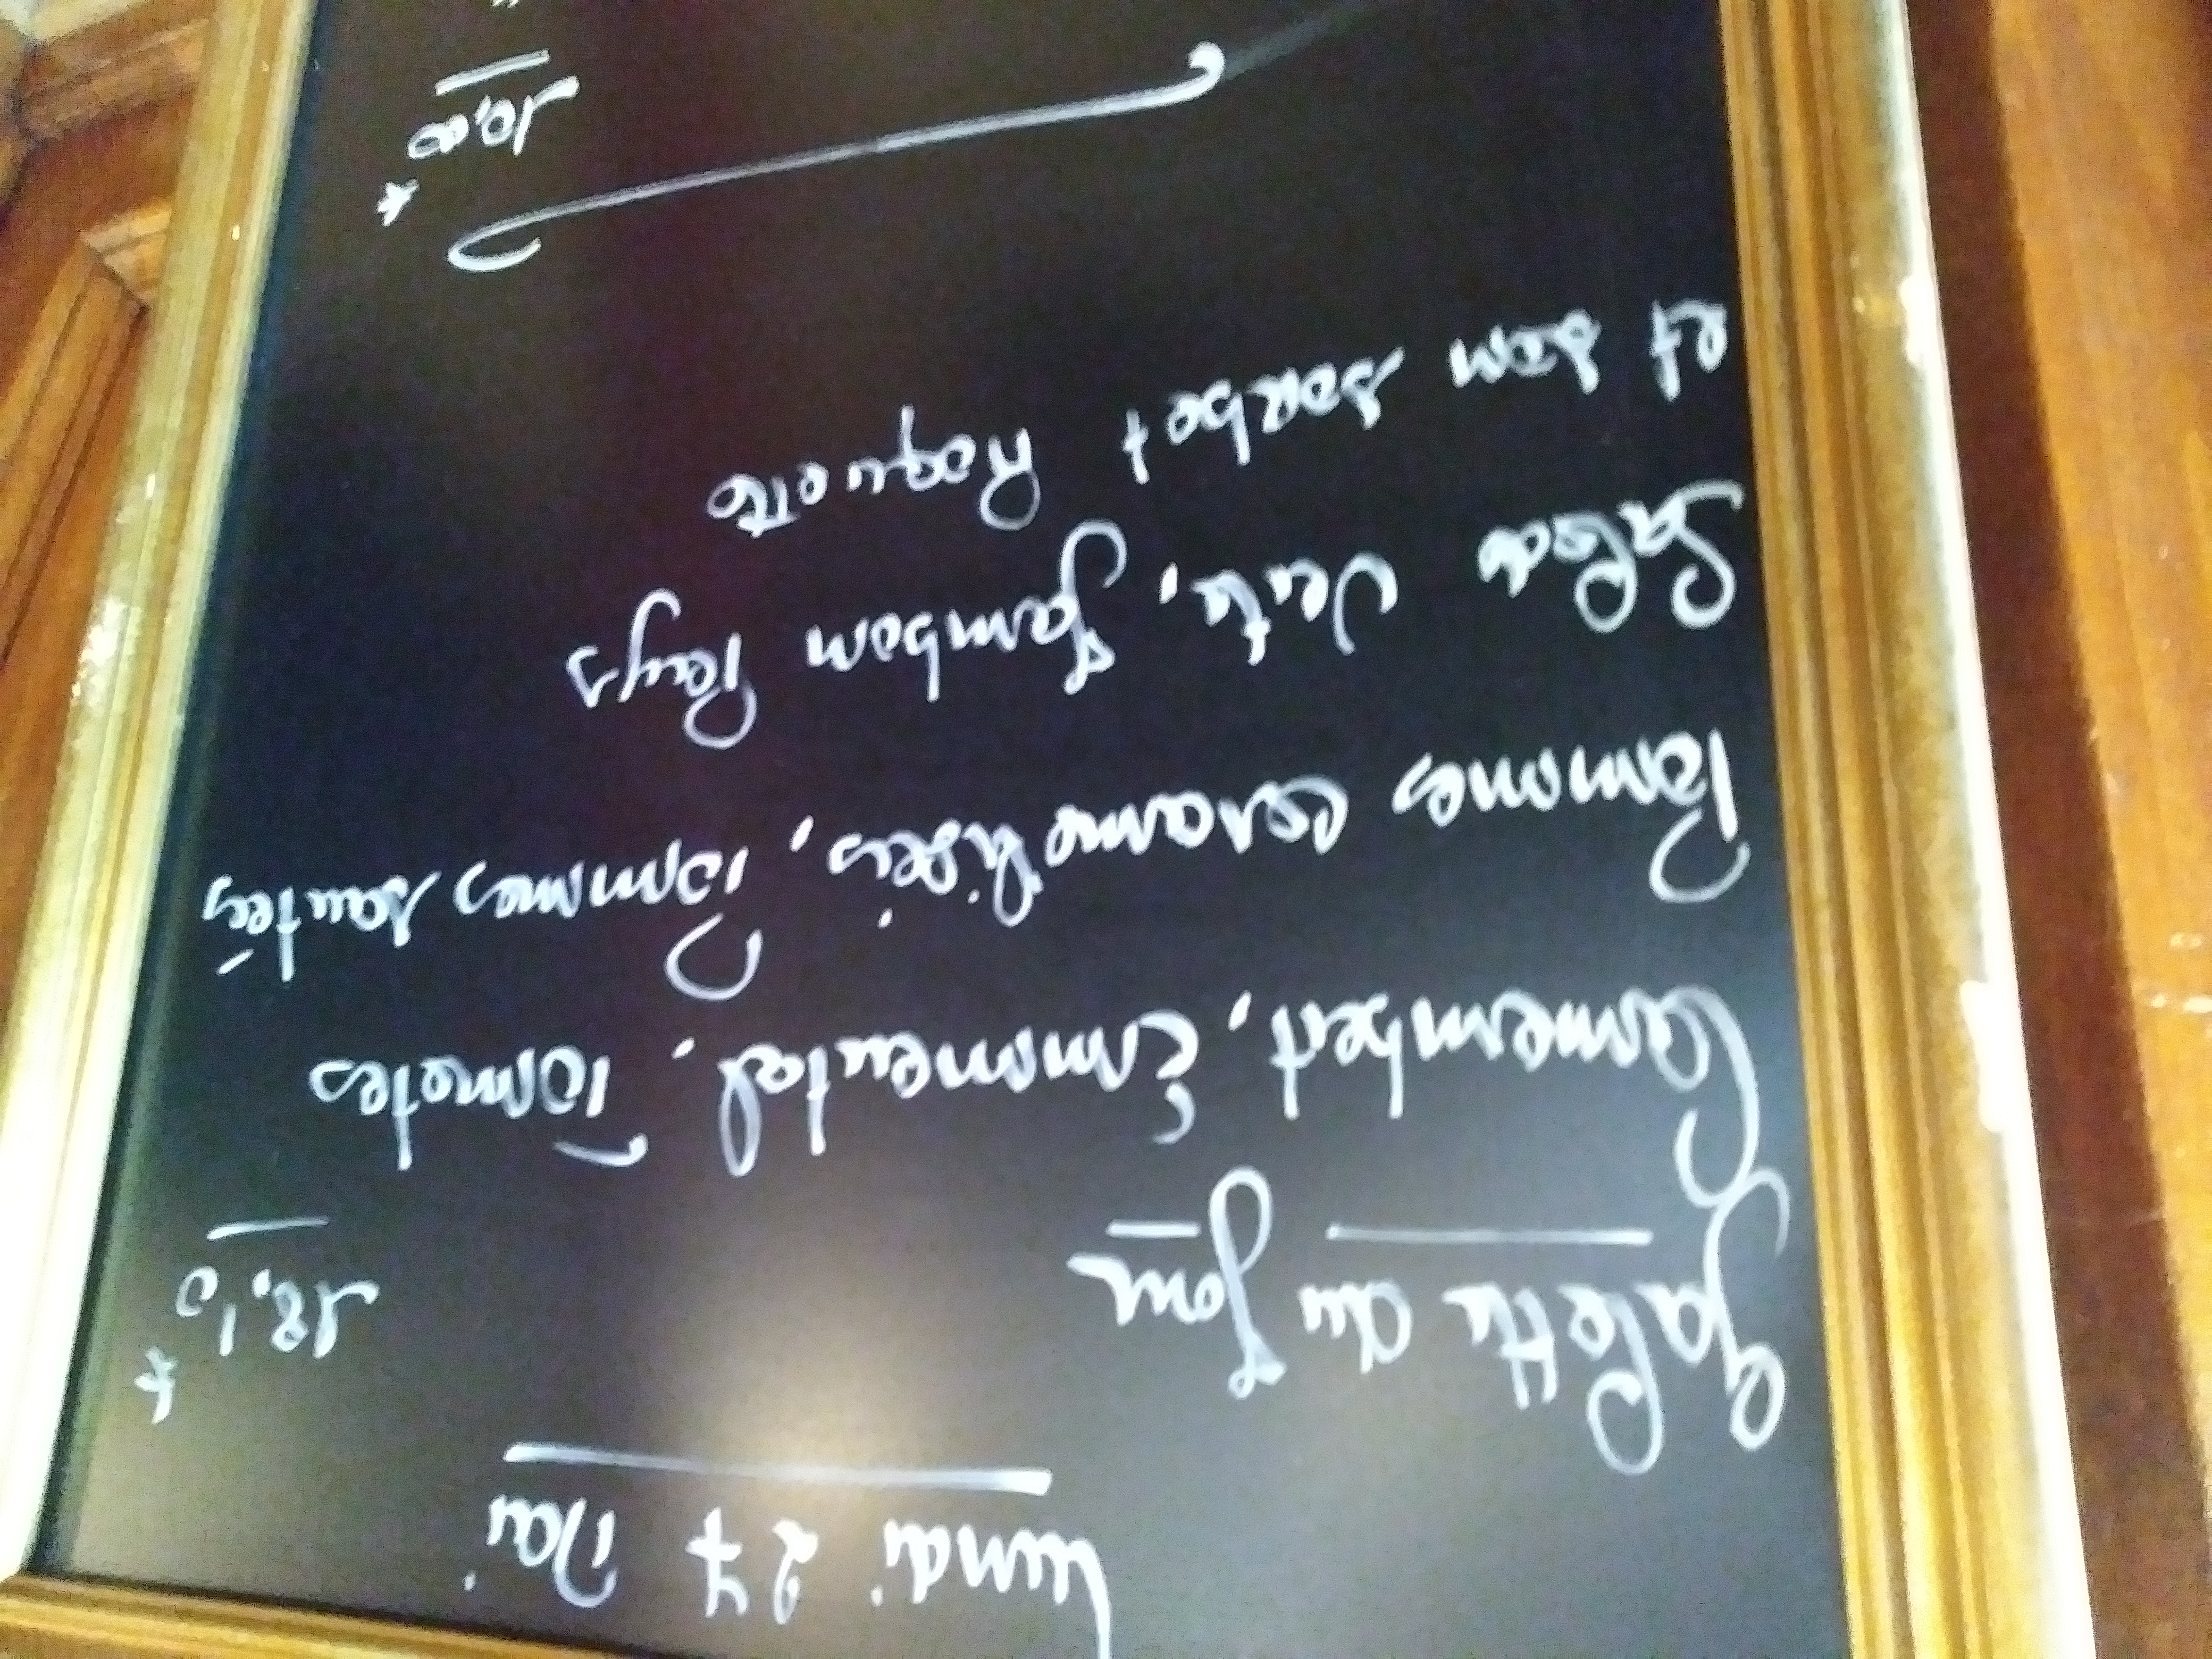 Lundi 27 Mai
Galette du Jour 18,10
Camembert, Emmental, Tomates
Pommes caramélisées, Pommes sautées
Salade Verte, Jambon Pays
et son sorbet Roquette
10,00